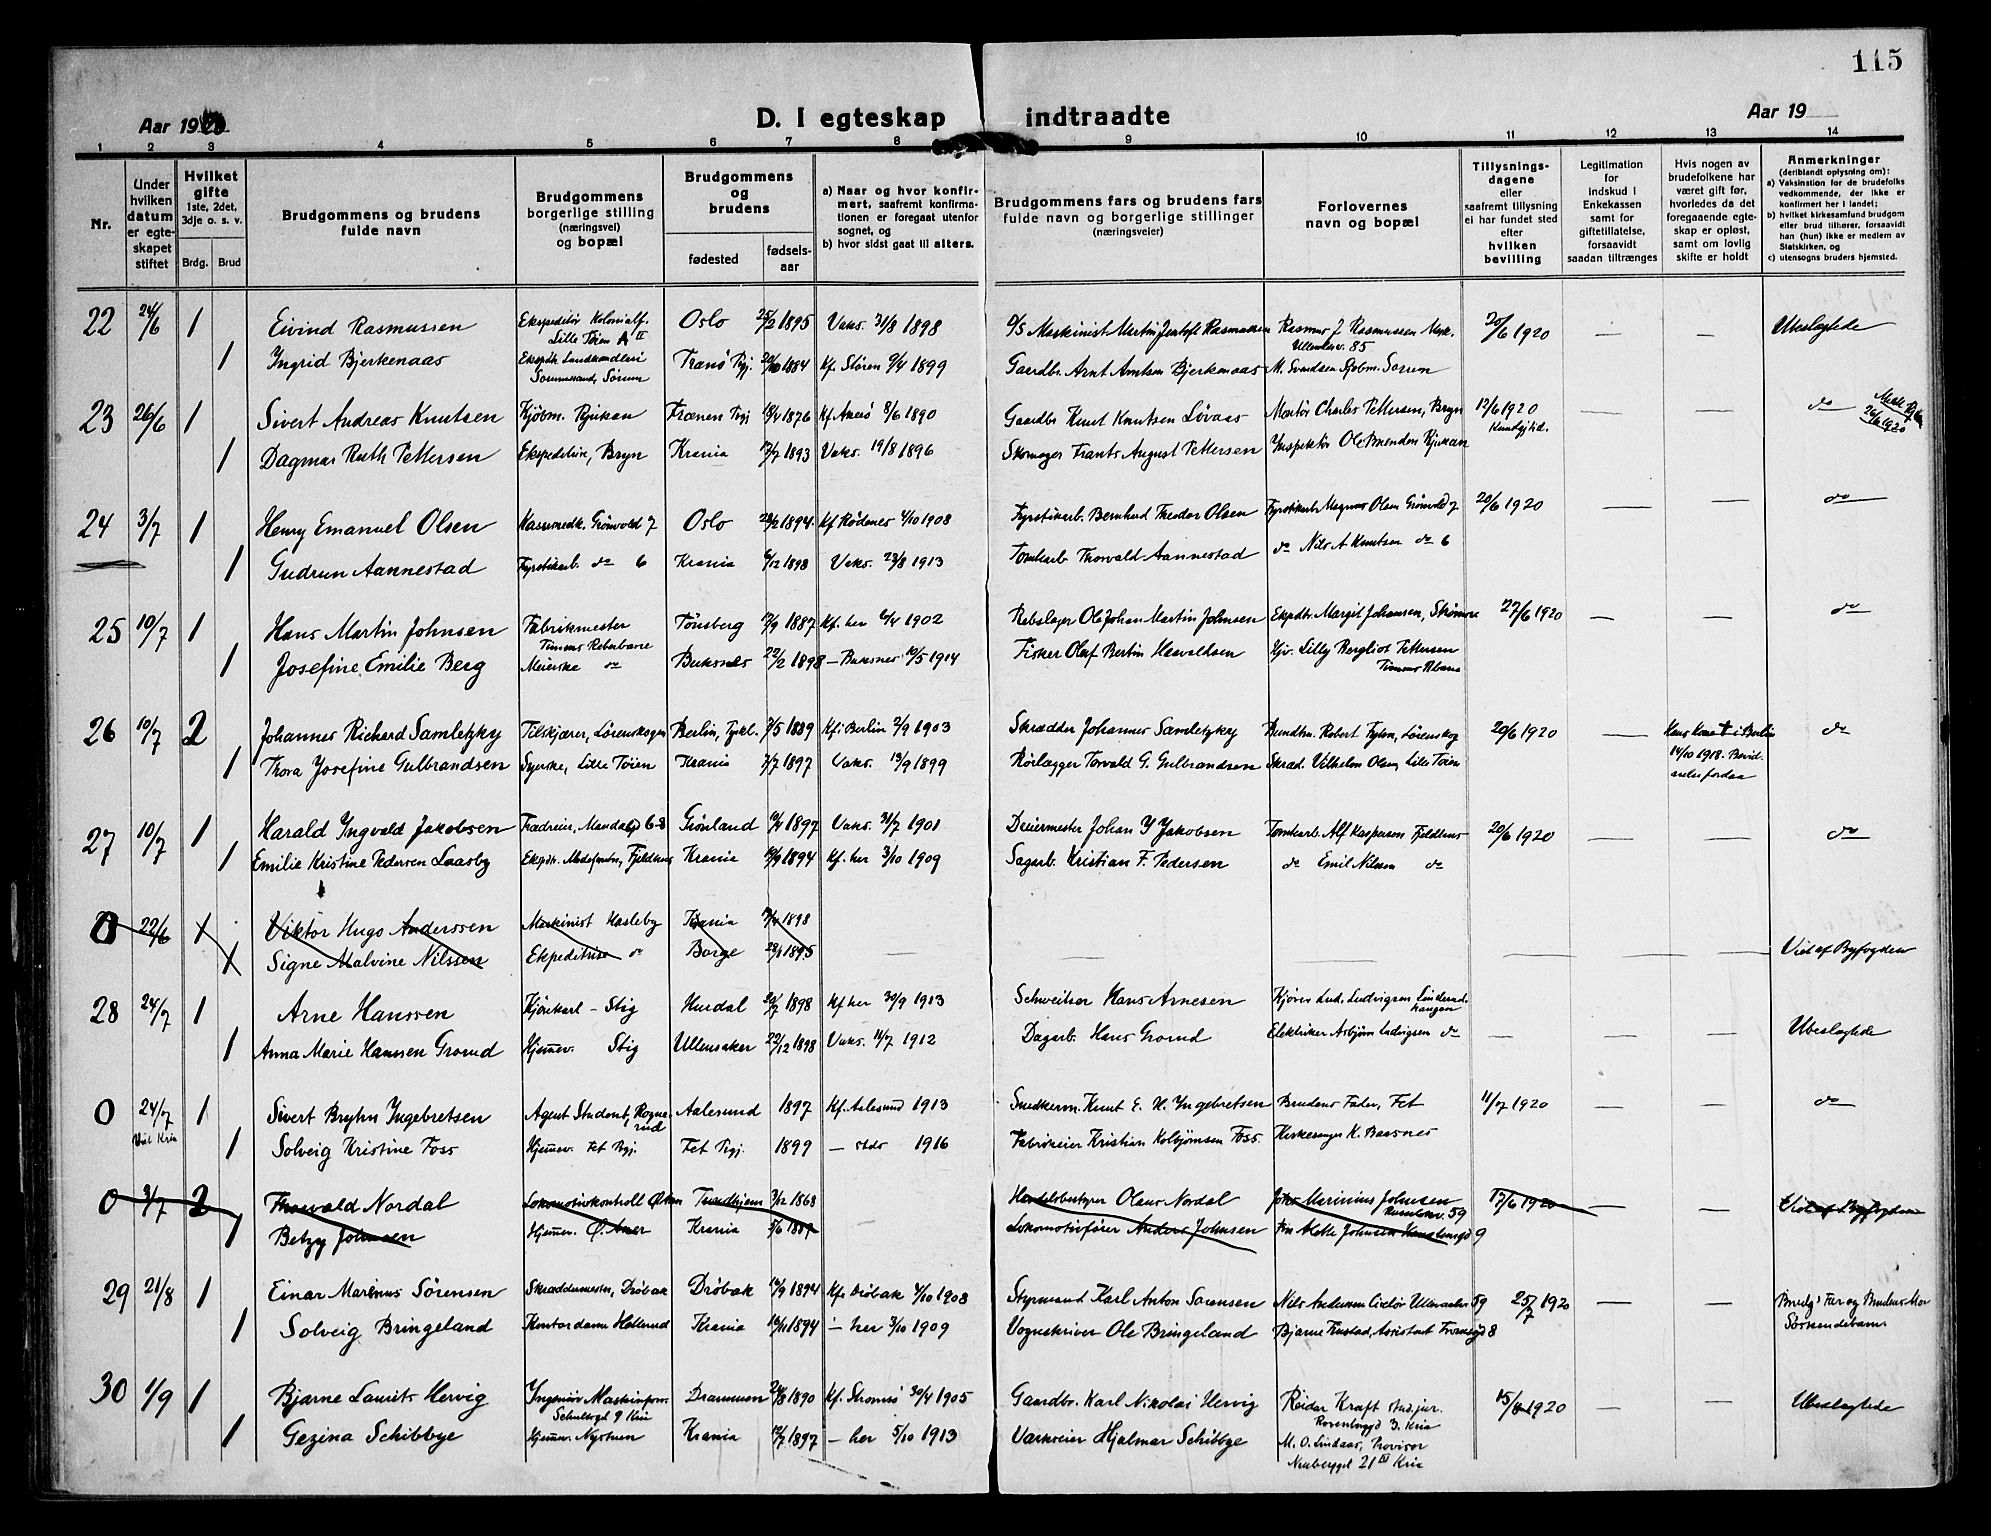 115
Aar 1920
D. I egteskap indtraadte
Aar 19
1 2 3 4 5 6 7 8 9 10 11 12 13 14
Nr.
Under hvilken datum er egteskapet stiftet
Hvilket gifte 1ste, 2det, 3dje o. s. v.
Brdg. Brud
Brudgommens og brudens fulde navn
Brudgommens borgerlige stilling (næringsvei) og bopæl
Brudgommens og brudens
fødested
fødselsaar
a) Naar og hvor konfirmert, saafremt konfirmationen er foregaat utenfor sognet, og
b) hvor sidst gaat til alters.
Brudgommens fars og brudens fars fulde navn og borgerlige stillinger (næringsveier)
Forlovernes navn og bopæl
Tillysningsdagene eller saafremt tillysning ei har fundet sted efter hvilken bevilling
Legitimation for indskud i Enkekassen samt for giftetillatelse, forsaavidt saadan tiltrænges
Hvis nogen av brudefolkene har været gift før, hvorledes da det foregaaende egteskap er opløst, samt om lovlig skifte er holdt
Anmerkninger (deriblandt oplysning om):
a) Vaksination for de brudefolks vedkommende, der ikke er konfirmert her i landet;
b) hvilket kirkesamfund brudgom eller brud tilhører, forsaavidt han (hun) ikke er medlem av Statskirken, og
c) utensogns bruders hjemsted.
22 24/6 1 Eivind Rasmussen Ekspeditør Kolonialf. Lille Tøien Oslo 25/2 1895 Vaks. 31/8 1898 Maskinist Martin Rasmussen Rasmus J Rasmussen Ullevålsv. 85 20/6 1920 — — Ubeslegtede
1 Ingrid Bjerkenaas Ekspdtr. Landhandleri Sørumsand, Sørum Tranø Pgj. 20/10 1884 Kf. Støren 9/4 1899 Gaardbr. Arnt Arntsen Bjerkenaas M. Svendsen Sørum
23 26/6 1 Sivert Andreas Knutsen Kjøbm. Rjukan Frænen Pgj 18/4 1876 Kf. Akerø 8/6 1890 Gaardbr. Knut Knutsen Løvaas Montør Charles Pettersen, Bryn 12/6 1920 — — do 26/6 1920
1 Dagmar Ruth Pettersen Ekspeditrise, Bryn Krania 12/7 1893 Vaks. 19/8 1896 Skomager Frants August Pettersen Inspektør Ole Brenden Rjukan
24 3/7 1 Henry Emanuel Olsen Grönvold 7 Oslo 1894 Kf. Rødenes 4/10 1908 Fyrstikarb. Bernhard Theodor Olsen Fyrstikarb. Magnus Olsen Grønvold 7 20/6 1920 — — do
1 Gudrun Aannestad Fyrstikarb. do 6 Krania 6/12 1898 Vaks. 23/8 1913 Tomtearb. Thorvald Aannestad do Nils A Knutsen do 6
25 10/7 1 Hans Martin Johnsen Fabrikmester Timms Reberbane Tønsberg 12/9 1887 Kf. her 6/4 1902 Rebslager Ole Johan Martin Johnsen Ekspdtr. Margit Johansen, 27/6 1920 — — do
1 Josefine Emilie Berg Meierske do Buksnes 22/2 1898 — Buksnes 10/5 1914 Fisker Olaf Bertin Hjv. Lilly Bergliot Pettersen
26 10/7 2 Johannes Richard Samletzky Tilskjærer, Lørenskogen Berlin, Tyskl. 7/5 1889 Kf. i Berlin 2/9 1903 Skrædder Johannes Samletzky Robert Lørenskog 20/6 1920 — Hans kone † i Berlin 14/10 1918. do
1 Thora Josefine Gulbrandsen Syerske, Lille Tøien Krania 7/7 1897 Vaks. 13/9 1899 Rørlægger Torvald G. Gulbrandsen Skræd. Vilhelm Olsen, Lille Tøien
27 10/7 1 Harald Ingvald Jakobsen Trædreier, Mandalsgd 6-8 Grønland 10/4 1897 Vaks. 31/7 1901 Dreiermester Johan Y Jakobsen Tomtearb. Alf Kaspersen Fjeldhus 20/6 1920 — — do
1 Emilie Kristine Pedersen Laasby Krania 19/9 1894 Kf. her 3/10 1909 Sagarb. Kristian F. Pedersen do Emil Nilsen do
0 22/6 1 Viktor Hugo Anderssen Maskinist Hasleby Krania 1898
1 Signe Malvine Nilssen Ekspeditrise do Borge 1895 — — — — — — Viet af Byfogden
28 24/7 1 Arne Hanssen Kjørekarl – Stig Hurdal 20/7 1898 Kf. her 30/9 1913 Schweitser Hans Arnesen Kjører Lud. Ludvigsen Linderud
1 Anna Marie Hansen Grorud Hjemmev. Stig Ullensaker 22/12 1898 Vaks. 11/7 1912 Dagarb. Hans Grorud Elektriker Asbjørn Ludvigsen do — — — Ubeslegtede
0 24/7 Viet Kria 1 Sivert Bryhn Ingebretsen Agent Student, Rognerud Aalesund 1897 Kf. Aalesund 1913 Snedkerm. Knut E. N. Ingebretsen Brudens Fader, Fet 11/7 1920 — — do
1 Solveig Kristine Foss Hjemmev. Fet Pgj. Fet Pgj. 1899 — stds 1916 Fabrikeier Kristian Kolbjørnsen Foss Kirkesanger K. Baasnes
0 3/7 2 Thorvald Nordal Trondhjem 3/12 1868 — Olaus Nordal Marinius Johnsen 59 17/6 1920 — — Viet af Byfogden
1 Betzy Johnsen Hjemmev. Ø. Aker Krania 5/6 1887 Lokomotivfører Anders Johnsen Frk Mette Johnsen 9
29 21/8 1 Einar Marenus Sörensen Skræddermester, Drøbak Drøbak 16/9 1894 Kf. Drøbak 4/10 1908 Styrmand Karl Anton Sørensen Nils Andersen 59 25/7 1920 — — Brudg's Far og Brudens Mor Søskendebarn
1 Solveig Bringeland Kontordame Hellerud Krania 16/11 1894 — her 3/10 1909 Vognskriver Ole Bringeland Bjarne Finstad, Assistent Tromsøgd 8
30 4/9 1 Bjarne Laurits Hervig Ingeniør Maskinforr. Schultzgd 9 Kria Drammen 24/8 1890 Kf. Strømsø 30/4 1905 Gaardbr. Karl Nikolai Hervig Reidar Kraft stud. jur. Rosenborggd 3. Kria 15/8 1920 — — Ubeslegtede
1 Gezina Schibbye Hjemmev. Nystuen Krania 12/7 1897 — her 5/10 1913 Værkeier Hjalmar Schibbye M. O. Lindaas, Provisor
Neuberggd 21 IV Kria